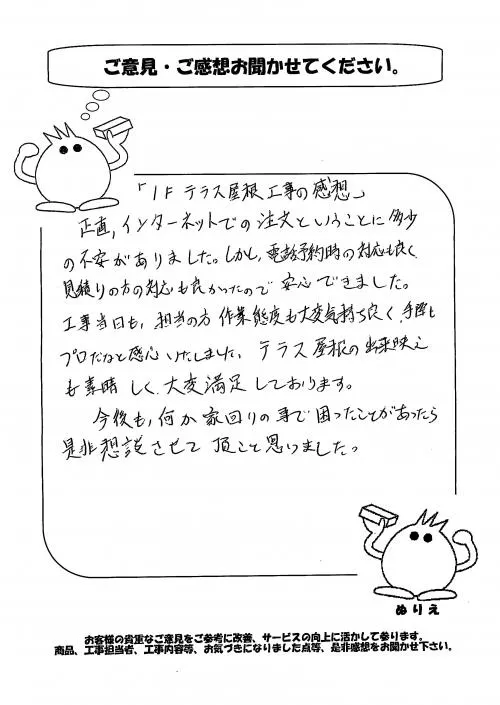 ご意見・ご感想お聞かせてください。
「1F テラス屋根工事の感想」
正直,インターネットでの注文ということに多少
の不安がありました。しかし,電話予約時の対応も良く
見積りの方の対応も良かったので安心できました。
工事当日も,担当の方 作業態度も大変気持ち良く,手際も
プロだなと感心いたしました。テラス屋根の出来映え
も素晴しく、大変満足しております。
今後も,何か家回りの事で困ったことがあったら
是非想談させて頂こと思いました。
ぬりえ
お客様の貴重なご意見をご参考に改善、サービスの向上に活かして参ります。
商品、工事担当者、工事内容等、お気づきになりました点等、是非感想をお聞かせ下さい。